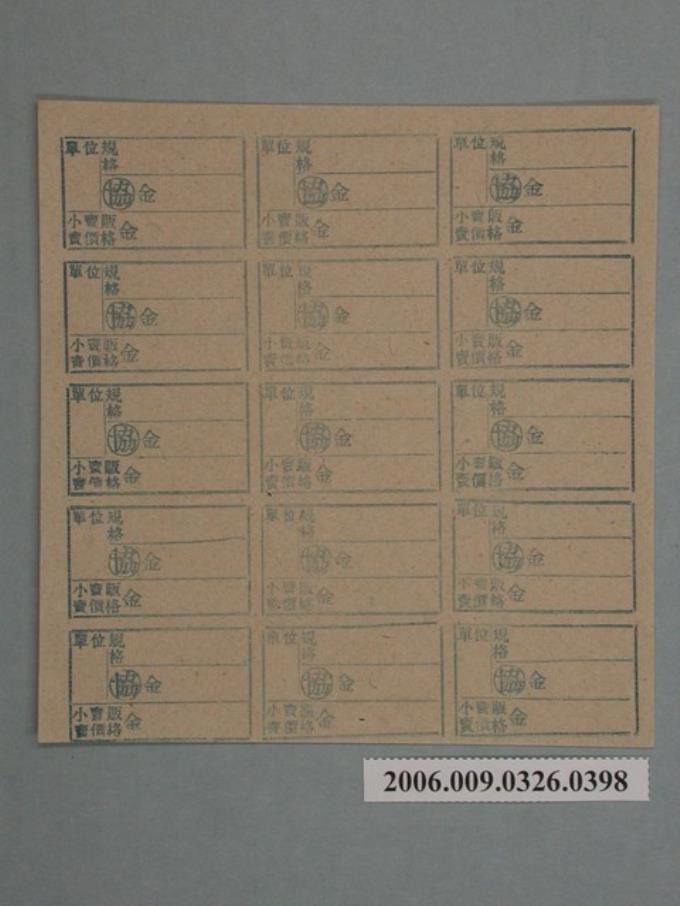 單位規
格
協金
小賣販
賣價格金
單位規
格
協金
小賣販
賣價格金
單位規
格
協金
小賣販
賣價格金
單位規
格
協金
小賣販
賣價格金
單位規
格
協金
小賣販
賣價格金
單位規
格
協金
小賣販
賣價格金
單位規
格
協金
小賣販
賣價格金
單位規
格
協金
小賣販
賣價格金
單位規
格
協金
小賣販
賣價格金
單位規
格
協金
小賣販
賣價格金
單位規
格
協金
小賣販
賣價格金
單位規
格
協金
小賣販
賣價格金
單位規
格
協金
小賣販
賣價格金
單位規
格
協金
小賣販
賣價格金
單位規
格
協金
小賣販
賣價格金
2006.009.0326.0398